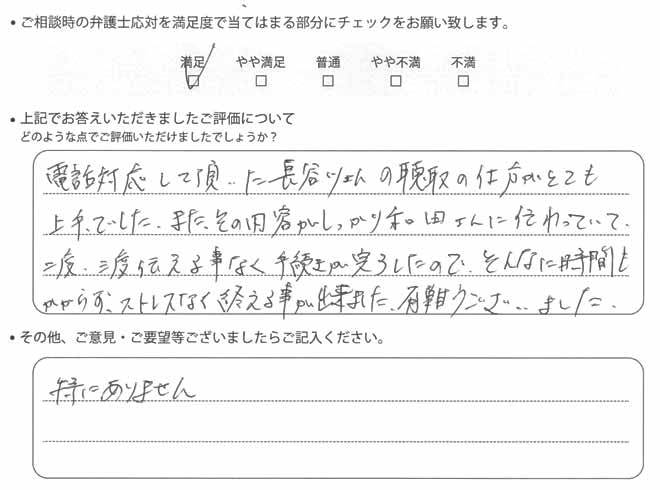 • ご相談時の弁護士応対を満足度で当てはまる部分にチェックをお願い致します。
満足 やや満足 普通 やや不満 不満
• 上記でお答えいただきましたご評価について
どのような点でご評価いただけましたでしょうか?
電話対応して頂いた長谷川さんの聴取の仕方がとても
上手でした。また、その内容がしっかり和田さんに伝わっていて、
二度、三度伝える事なく手続きが完了したので、そんなに時間も
かからず、ストレスなく終える事が出来ました。有難うございました。
• その他、ご意見・ご要望等ございましたらご記入ください。
特にありません